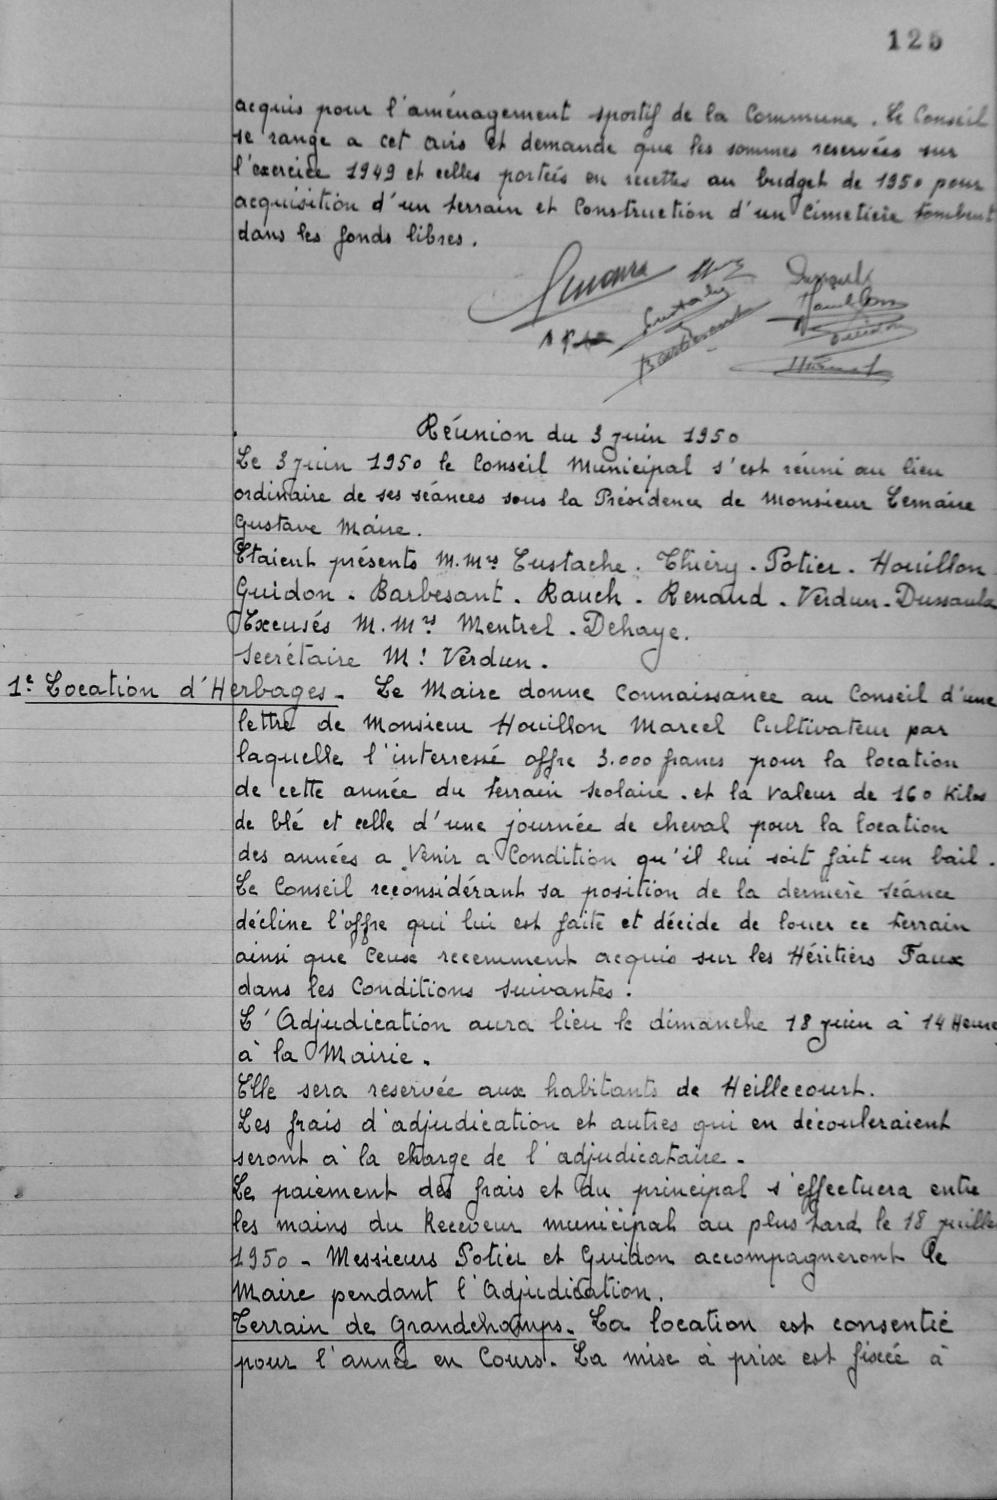 125
acquis pour l'aménagement sportif de la Commune. Le Conseil
se range a cet avis et demande que les sommes reservées sur
l'exercice 1949 et celles portées en recettes au budget de 1950 pour
acquisition d'un terrain et Construction d'un Cimetière tombent
dans les fonds libres.
Eustache
Barbesant
Guidon
Réunion du 3 juin 1950
Le 3 juin 1950 le Conseil Municipal s'est réuni au lieu
ordinaire de ses séances sous la Présidence de Monsieur Lemaire
Gustave Maire.
Etaient présents M.Mrs Eustache. Thiéry. Potier. Houillon
Guidon. Barbesant. Rauch. Renaud. Verdun. Dussaulx
Excusés M.Mrs Mentrel. Dehaye.
Secrétaire Mr Verdun.
1e Location d'Herbages. Le Maire donne Connaissance au Conseil d'une
lettre de Monsieur Houillon Marcel Cultivateur par
laquelle l'interressé offre 3.000 francs pour la location
de cette année du terrain scolaire. et la valeur de 160 Kilos
de blé et celle d'une journée de cheval pour la location
des années a Venir a Condition qu'il lui soit fait un bail.
Le Conseil reconsidérant sa position de la dernière séance
décline l'offre qui lui est faite et décide de louer ce terrain
ainsi que Ceux recemment acquis sur les Héritiers Faux
dans les Conditions suivantes:
L'Adjudication aura lieu le dimanche 18 juin à 14 Heures
à la Mairie.
Elle sera reservée aux habitants de Heillecourt.
Les frais d'adjudication et autres qui en découleraient
seront à la charge de l'adjudicataire.
Le paiement des frais et du principal s'effectuera entre
les mains du Receveur municipal au plus tard le 18 juillet
1950. Messieurs Potier et Guidon accompagneront le
Maire pendant l'Adjudication.
Terrain de Grandchamps. La location est consentie
pour l'année en Cours. La mise à prix est fixée à